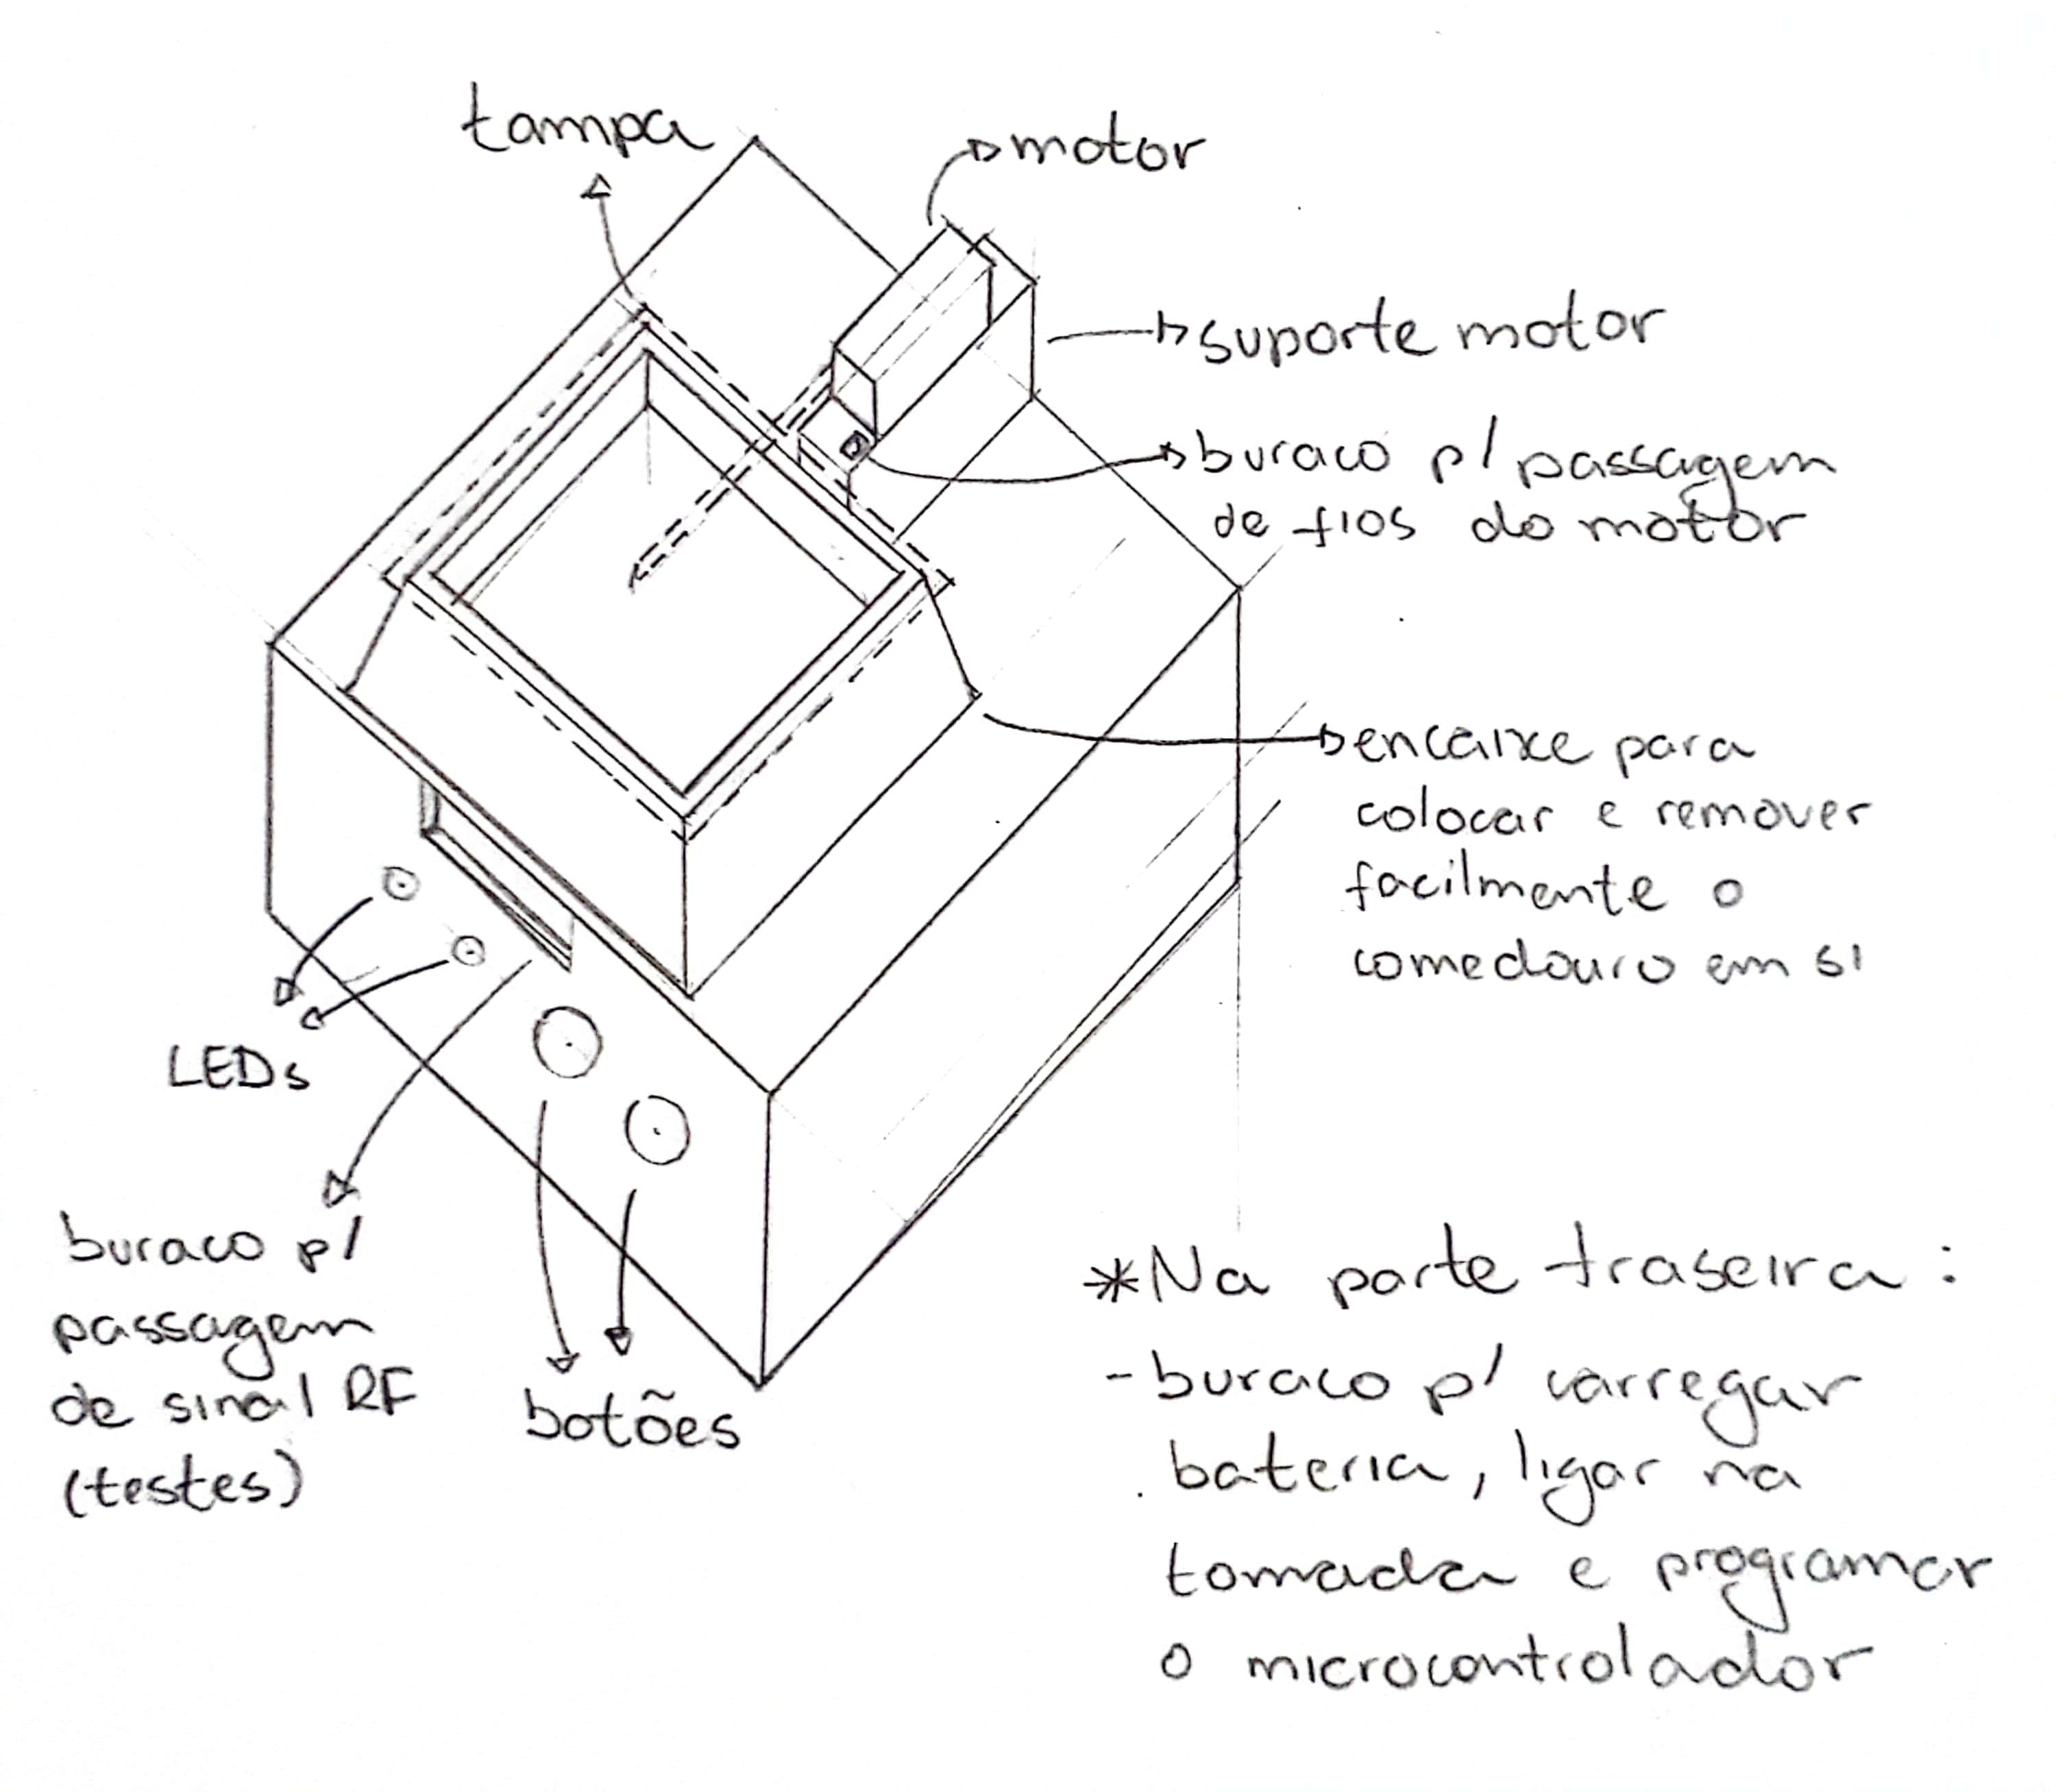 tampa
motor
suporte motor
buraco p/ passagem
de fios do motor
encaixe para
colocar e remover
facilmente o
comedouro em si
LEDs
buraco p/
passagem
de sinal RF
(testes)
botões
*Na parte traseira:
- buraco p/ carregar
bateria, ligar na
tomada e programar
o microcontrolador